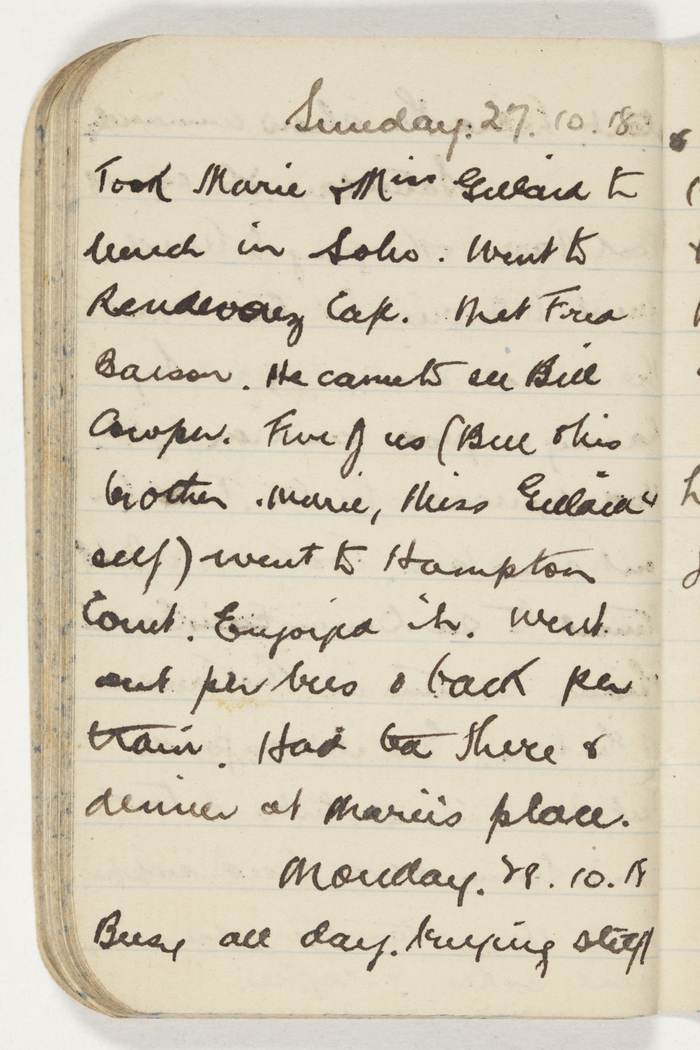 Sunday. 27. 10. 18
Took Marie & Miss Gillard to
lunch in Soho. Went to
Rendevouz Cafe. Met Fred
He came to see Bill
Cowper. Five of us (Bill & his
brother. Marie, Miss Gillard &
self) went to Hampton
Court. Enjoyed it. Went
out per bus & back per
train. Had tea there &
dinner at Marie's place.
Monday. 28. 10. 18
Busy all day. buying stuff